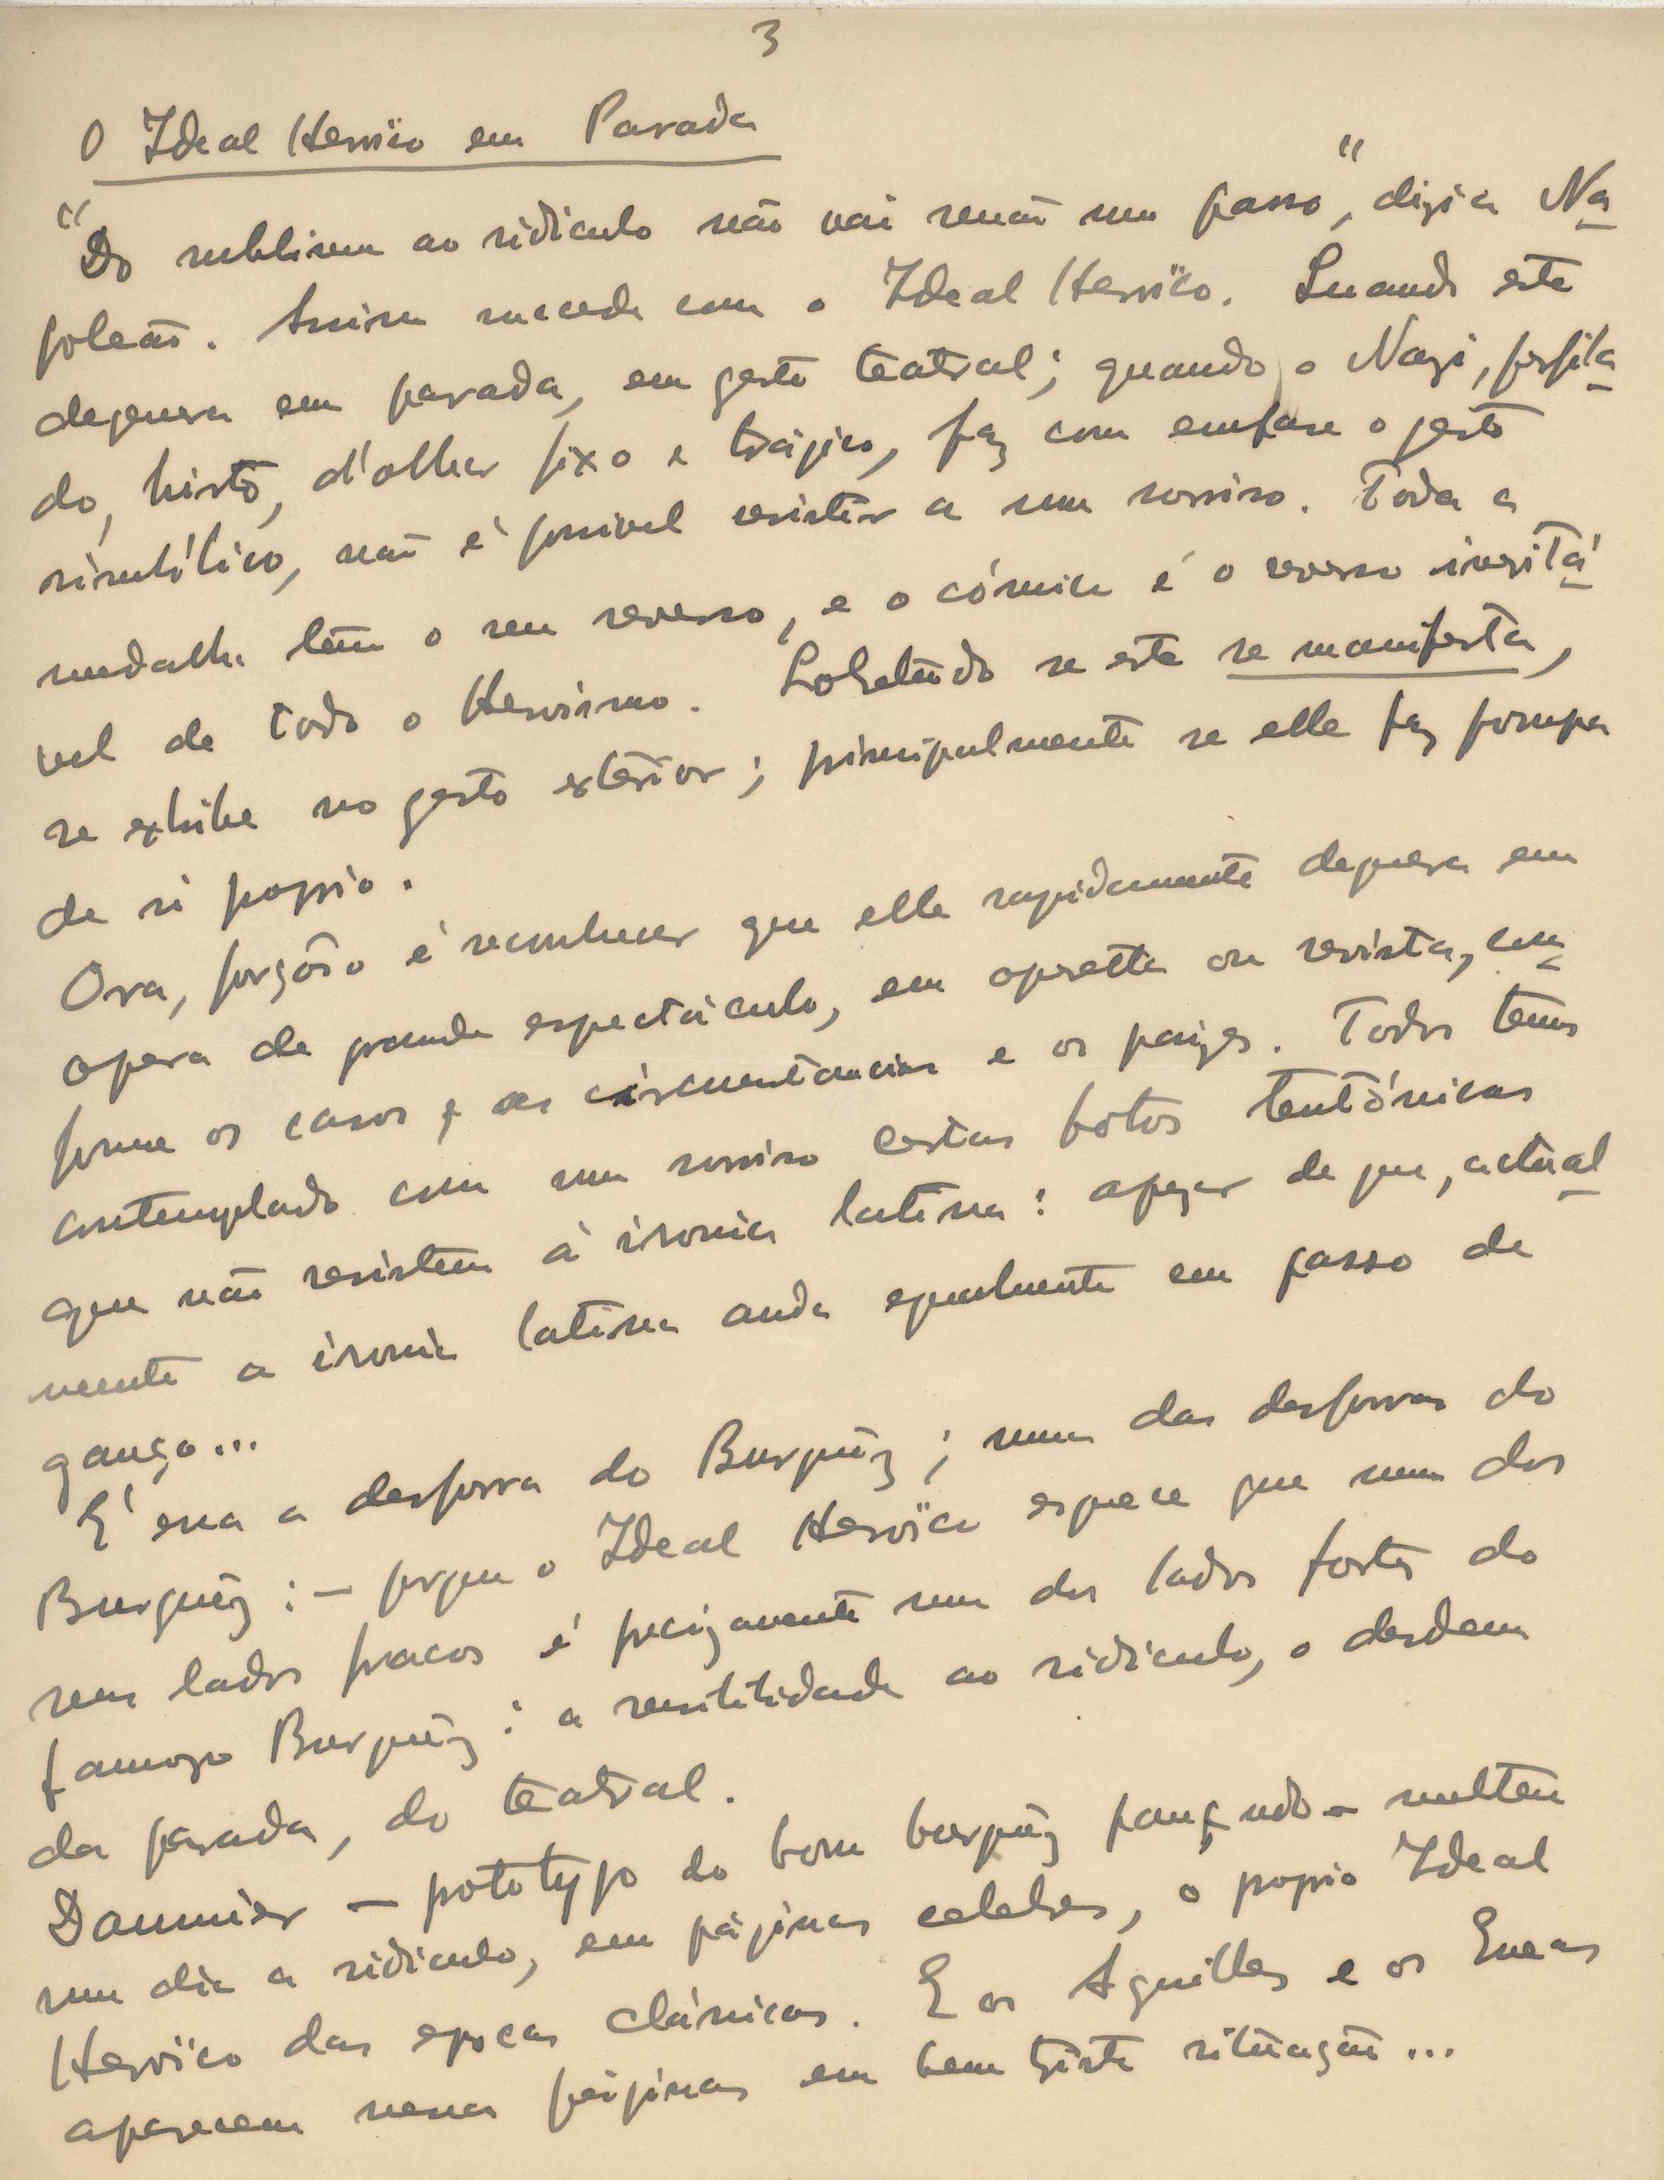 3
O Ideal Heroïco em Parada
"Do sublime ao ridiculo não vai senão um passo", dizia Na
poleão. Assim succede com o Ideal Heroïco. Quando este
degenera em parada, em gesto teatral; quando o Nazi, perfila
do, hirto, d'olhar fixo e trágico, faz com emfase o gesto
simbólico, não é possivel resistir a um sorriso. Toda a
medalha tem o seu reverso, e o cómico é o reverso inevitá
vel de todo o Heroismo. Sobretudo se este se manifesta,
se exhibe no gesto exterior; principalmente se elle faz pompa
de si proprio.
Ora, forçôso é reconhecer que elle rapidamente degenera em
opera de grande espectáculo, em operetta ou revista, con
forme os casos, as circumstancias e os paizes. Todos temos
contemplado com um sorriso certas fotos teutónicas
que não resistem á ironia latina: apezar de que, actual
mente a ironia latina anda egualmente em passo de
ganço...
E' essa a desforra do Burguêz; uma das desforras do
Burguêz: - porque o Ideal Heroïco esquece que um dos
seus lados fracos é precizamente um dos lados fortes do
famozo Burguêz: a sensibilidade ao ridiculo, o desdem
da parada, do teatral.
Daumier - prototypo do bom burguêz pançudo - metteu
um dia a ridiculo, em páginas celebres, o proprio Ideal
Heroïco das epocas clássicas. E os Aquilles e os Eneas
aparecem nessas páginas em bem triste situação...